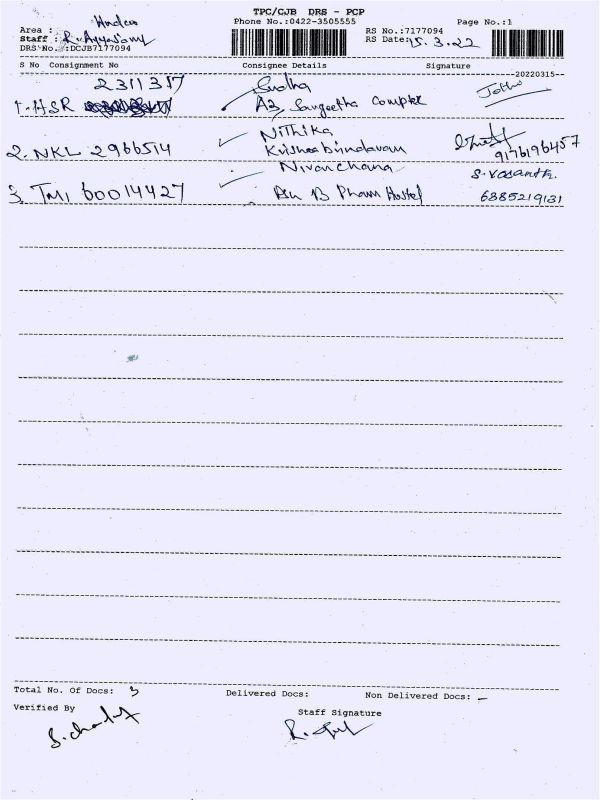 TPC/CJB DRS - PCP
Phone No.:0422-3505555
Page No.:1
Area :
Staff : R. Ayyasamy
DRS No. :DCJB7177094
RS No.:7177094
RS Date: 15.3.22
S No Consignment No Consignee Details Signature
20220315
2311317 Sudha
1. HSR A3, Sangeetha Complex
Nithika
2. NKL 2966514 Krishna brindavan
9176196457
Nivanchana S. Vasanth.
3. TMI 60014427 Hostel 6385219131
Total No. Of Docs: 3 Delivered Docs: Non Delivered Docs: –
Verified By
Staff Signature